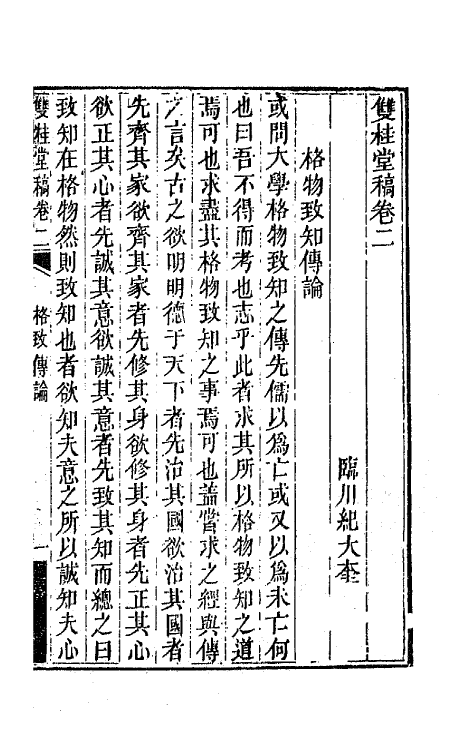 雙桂堂稿卷二
臨川紀大奎
格物致知傳論
或問大學格物致知之傳先儒以爲亡或又以爲未亡何
也曰吾不得而考也志乎此者求其所以格物致知之道
焉可也求盡其格物致知之事焉可也蓋嘗求之經與傳
之言矣古之欲明明德于天下者先治其國欲治其國者
先齊其家欲齊其家者先修其身欲修其身者先正其心
欲正其心者先誠其意欲誠其意者先致其知而總之曰
致知在格物然則致知也者欲知夫意之所以誠知夫心
雙桂堂稿卷二 格致傳論 一